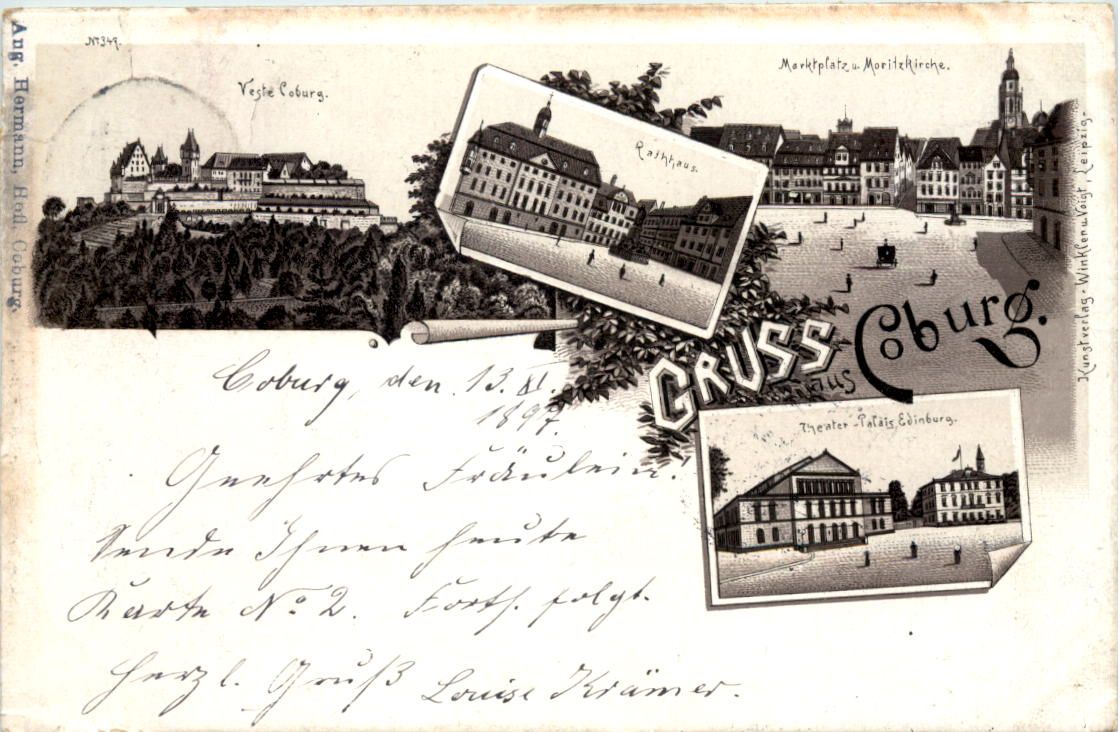 No 349.
Veste Coburg.
Rathhaus.
Marktplatz u. Moritzkirche.
GRUSS
aus
Coburg.
Theater-Palais Edinburg.
Aug. Hermann, Hofl. Coburg.
Kunstverlag-Winkler u. Voigt, Leipzig-
Coburg, den 13. XI.
1897.
Geehrtes Fräulein!
Sende Ihnen heute
Karte No 2. Forts. folgt.
Herzl. Gruß Louise Krämer.